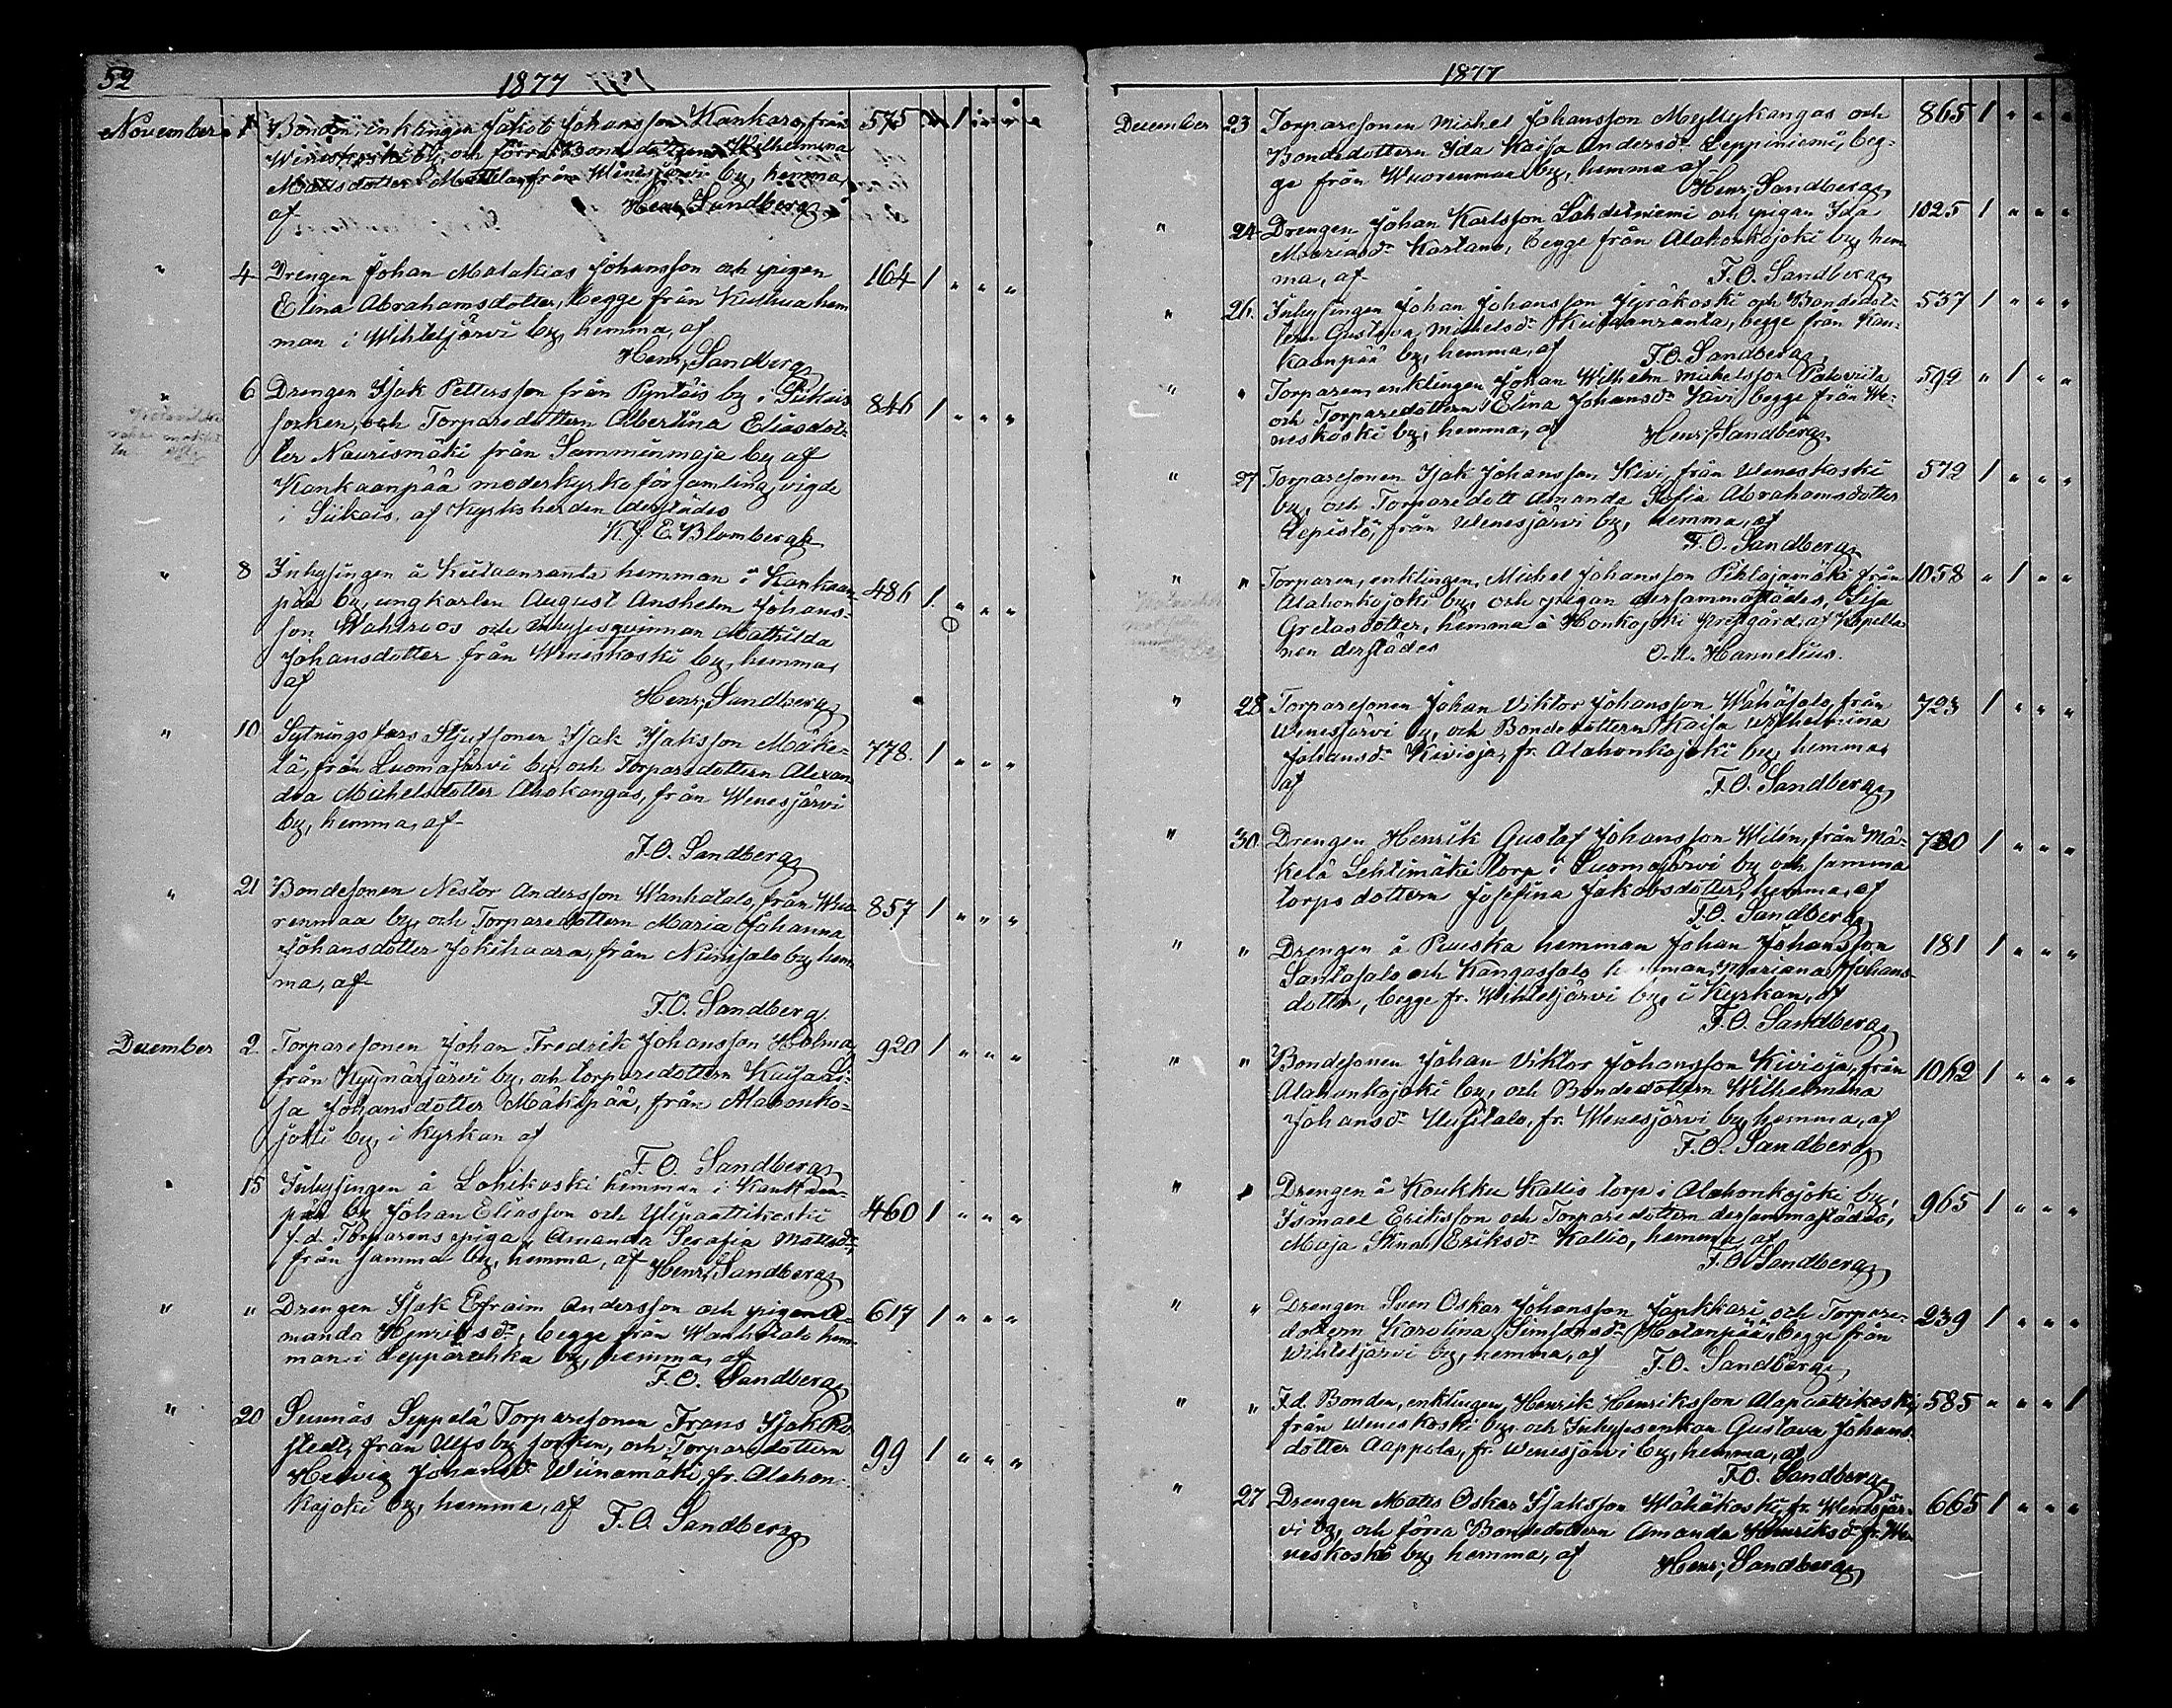 52
1877
November 1 Bonden, enklingen Jakob Johansson Kankars, från 575 " 1 " " "
Wineskoski by, och förra Bondedottren Wilhelmina
Mattsdotter Mattila, från Winesjärvi by, hemma,
af Henr. Sandberg
" 4 Drengen Johan Malakias Johansson och pigan 164 1 " " "
Elina Abrahamsdotter, begge från hem
man i Wihteljärvi by, hemma, af
Henr. Sandberg
" 6 Drengen Isak Pettersson från Pyntäis by i Siikais 846 1 " " "
socken, och Torparedottern Albertina Eliasdot-
ter Naurismäki från Samminmaja by af
Kankaanpää moderkyrkoförsamling, vigde
i Siikais, af Kyrkoherden derstädes
K. J. E. Blomberg
" 8 Inhysingen å Kiitaanranta hemman i Kankaan 486 1 " " "
pää by, ungkarlen August Anshelm Johans-
son och Inhysesqvinnan Mathilda
Johansdotter från Wineskoski by, hemma,
af
Henr. Sandberg
" 10 Sytnings Isak Isaksson Mäke- 778. 1 " " "
lä, från Luomajärvi by och Torparedottern Alexan
dra Michelsdotter Ahokangas, från Wenesjärvi
by, hemma, af
F. O. Sandberg
" 21 Bondesonen Nestor Andersson Wanhatalo, från Wuo 857 1 " " "
renmaa by, och Torparedottern Maria Johanna
Johansdotter Jokihaara, från Niinisalo by, hem
ma, af
F. O. Sandberg
December 2 Torparesonen Johan Fredrik Johansson Holma 920 1 " " "
från Kyynärjärvi by, och torparedottern Kaisa
ja Johansdotter Mäkipää, från Alahonko-
joki by, i Kyrkan af
F. O. Sandberg
" 15 Inhysingen å Lohikoski hemman i Kankaan-
pää by Johan Eliasson och Ylipaattikoski 460 1 " " "
f.d. Torparens piga Amanda Serafia Mattsdr
från samma by, hemma, af Henr. Sandberg
" " Drengen Isak Efraim Andersson och pigan A- 617 1 " " "
manda Henriksdr, begge från Wanhatalo hem
man i Leppäruhka by, hemma, af
F. O. Sandberg
" 20 Sunnäs Seppelä Torparesonen Frans Isak Ro
stedt, från Ulfsby socken, och Torparedottern 99 1 " " "
Hedvig Johansdr Wiinamäki, fr. Alahon-
kojoki by, hemma, af
F. O. Sandberg
1877
December 23 Torparesonen Michel Johansson Myllykangas och 865 1 " " "
Bondedottern Ida Kaisa Andersdr Leppiniemi, beg-
ge från Wuorenmaa by, hemma af
Henr. Sandberg
" 24 Drengen Johan Karlsson Lähdetniemi och pigan Ida 1025 1 " " "
Mariasdr Kartano, begge från Alahonkojoki by, hem
ma, af F. O. Sandberg
" 26. Inhysingen Johan Johansson Jyräkoski och Bondedot- 537 1 " " "
tern Gustava Michelsdr Kiitaanranta, begge från Kan-
kaanpää by, hemma, af F. O. Sandberg
" " Torparen, enklingen Johan Wilhelm Michelsson Paloviita 592 " 1 " "
och Torparedottern Elina Johansdr Kivi, begge från We-
neskoski by, hemma, af Henr. Sandberg
" 27 Torparesonen Isak Johansson Kivi, från Weneskoski 572 1 " " "
by, och Torparedott Amanda Sofia Abrahamsdotter
Lepistö, från Wenesjärvi by, hemma, af
F. O. Sandberg
" " Torparen, enklingen, Michel Johansson Pihlajamäki från 1058 " 1 " "
Alahonkojoki by, och pigan dersammastädes, Lisa
Gretasdotter, hemma å Honkojoki Prestgård, af Kapella
nen derstädes O. A. Hannelius.
" 28 Torparesonen Johan Viktor Johansson Wähäsalo, från 723 1 " " "
Wenesjärvi by, och Bondedottern Kaisa Wilhelmina
Johansdr Kivioja, fr. Alahonkojoki by, hemma,
af F. O. Sandberg
" 30 Drengen Henrik Gustaf Johansson Wilén, från Mä- 780 1 " " "
kelä Lehtimäki torp i Luomajärvi by och samma
torps dottern Josefina Jakobsdotter, hemma, af
F. O. Sandberg
" " Drengen å Puuska hemman Johan Johansson 181 1 " " "
Santasalo och Kangassalo hemman Mariana Johans
dotter, begge fr. Wihteljärvi by, i Kyrkan, af
F. O. Sandberg
" " Bondesonen Johan Viktor Johansson Kivioja, från 1062 1 " " "
Alahonkojoki by, och Bondedottern Wilhelmina
Johansdr Uusitalo, fr. Wenesjärvi by, hemma, af
F. O. Sandberg
" " Drengen å Koukku Kallio torp i Alahonkojoki by, 965 1 " " "
Ismael Eriksson och Torparedottern dersammastädes,
Maja Stina Eriksdr Kallio, hemma, af
F. O. Sandberg
" " Drengen Sven Oskar Johansson Jankkari och Torpare- 239 1 " " "
dottern Karolina Simsonsdr Hatanpää, begge från
Wihteljärvi by, hemma, af F. O. Sandberg
" " F.d. Bonden, enklingen, Henrik Henriksson Alapaattikoski, 585 " " " 1
från Weneskoski by, och Inhysesenkan Gustava Johans
dotter Aappola, fr. Wenesjärvi by, hemma, af
F. O. Sandberg
" 27 Drengen Matts Oskar Isaksson Wähäkoski, fr. Wenesjär- 665 1 " " "
vi by, och förra Bondedottern Amanda Henriksdr fr. We-
neskoski by, hemma, af
Henr. Sandberg